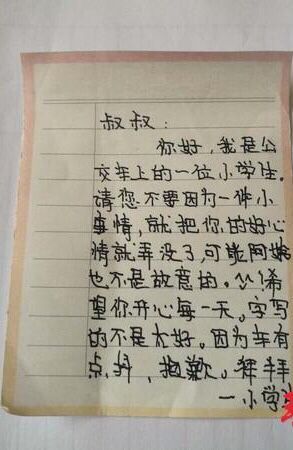 叔叔:
你好,我是公
交车上的一位小学生。
请您不要因为一件小
事情,就把你的好心
情就弄没了,可能阿姨
也不是故意的。必!希
望你开心每一天。字写
的不是太好。因为车有
点抖,抱歉。拜拜
一小学生